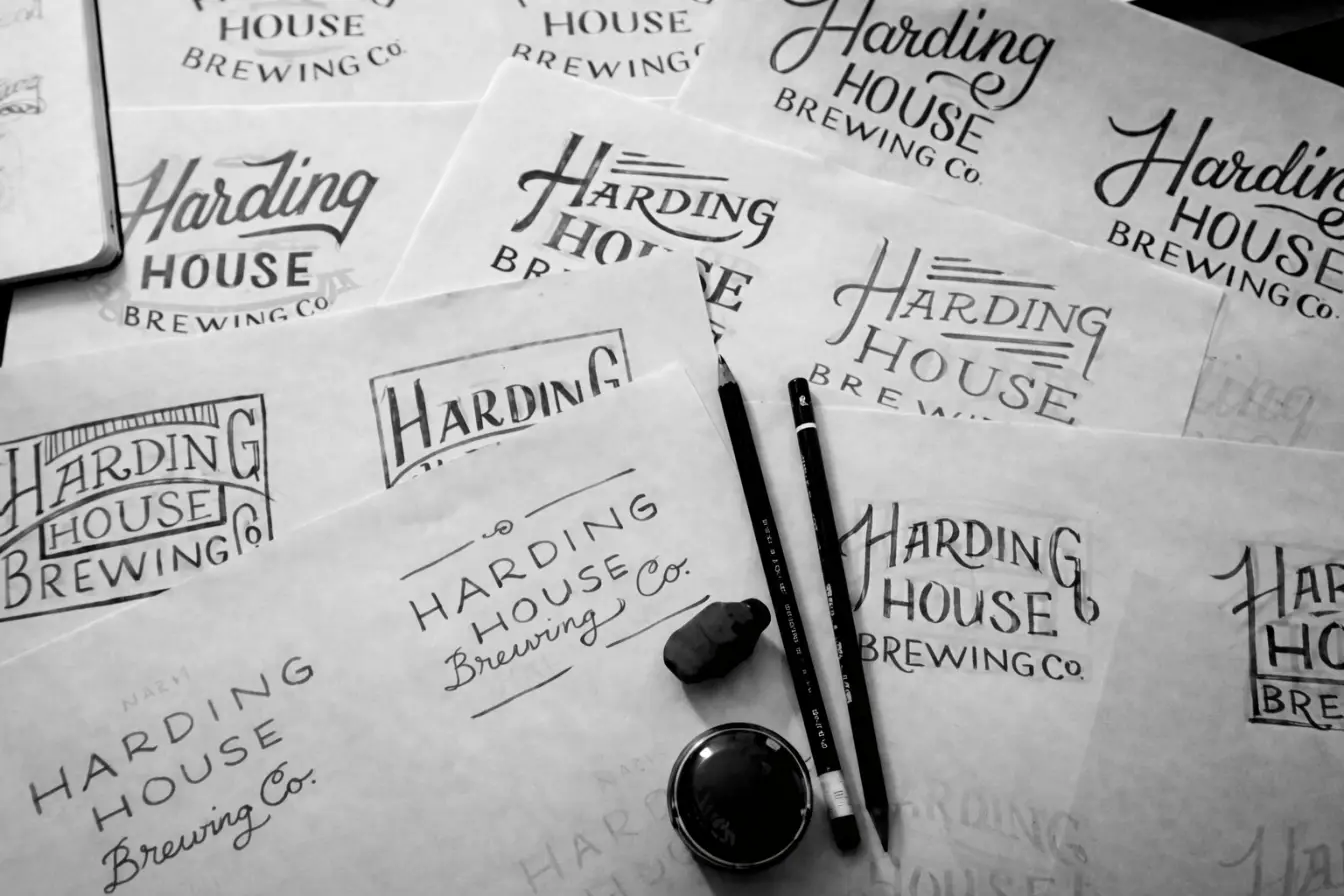 HOUSE
BREWING Co.
HOUSE
BREWING
Harding
HOUSE
BREWING Co.
Harding
HOUSE
BREWING Co.
Harding
HOUSE
BREWING Co
HARDING
HOUSE
BR
HARDING
HOUSE
BREWIN
HARDING
HOUSE
BREWING Co
HARDING
HARDING
HOUSE
Brewing Co.
HARDING
HOUSE
BREWING Co.
HAR
HO
BRE
HARDING
HOUSE
Brewing Co.
HARD
HOU
HARDING
HOUSE
HA